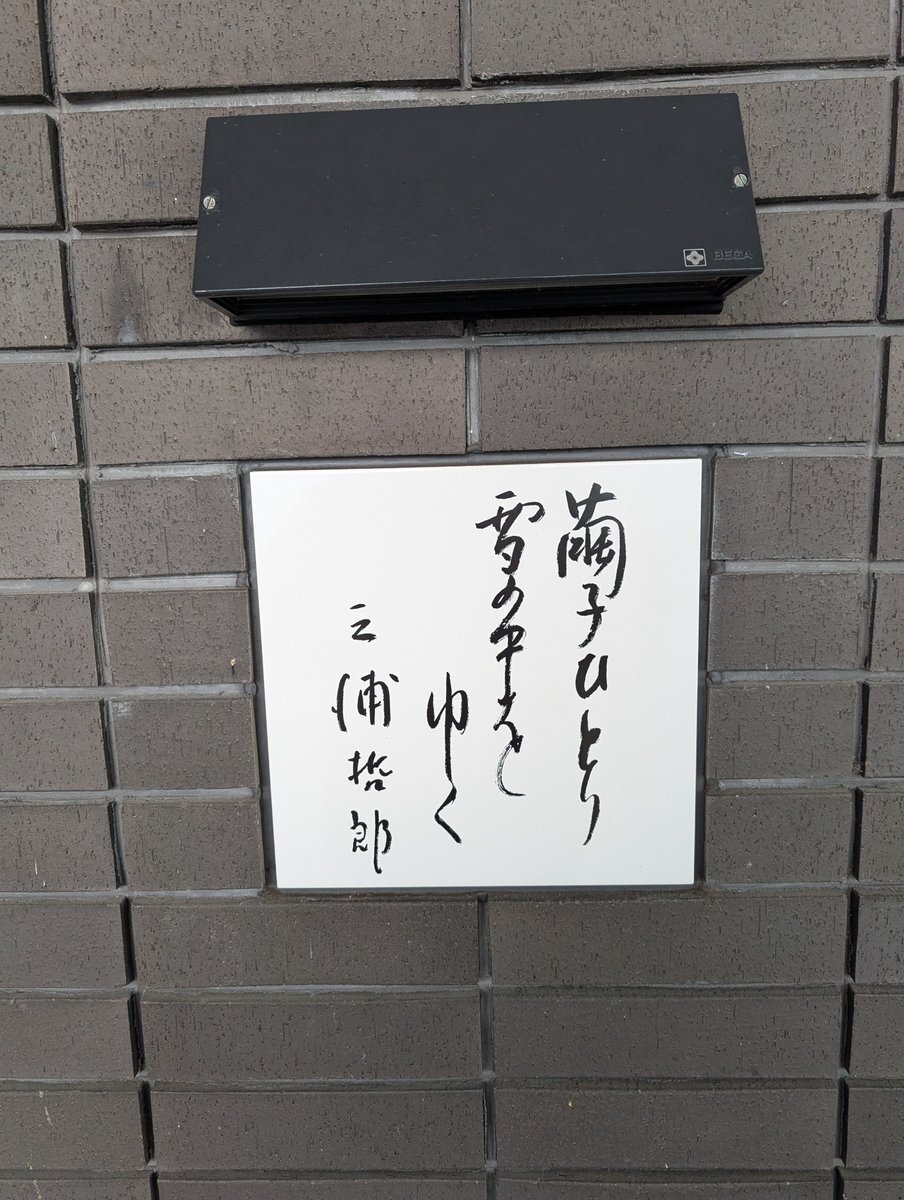 BEGA
繭子ひとり
雪の中を
ゆく
三浦哲郎